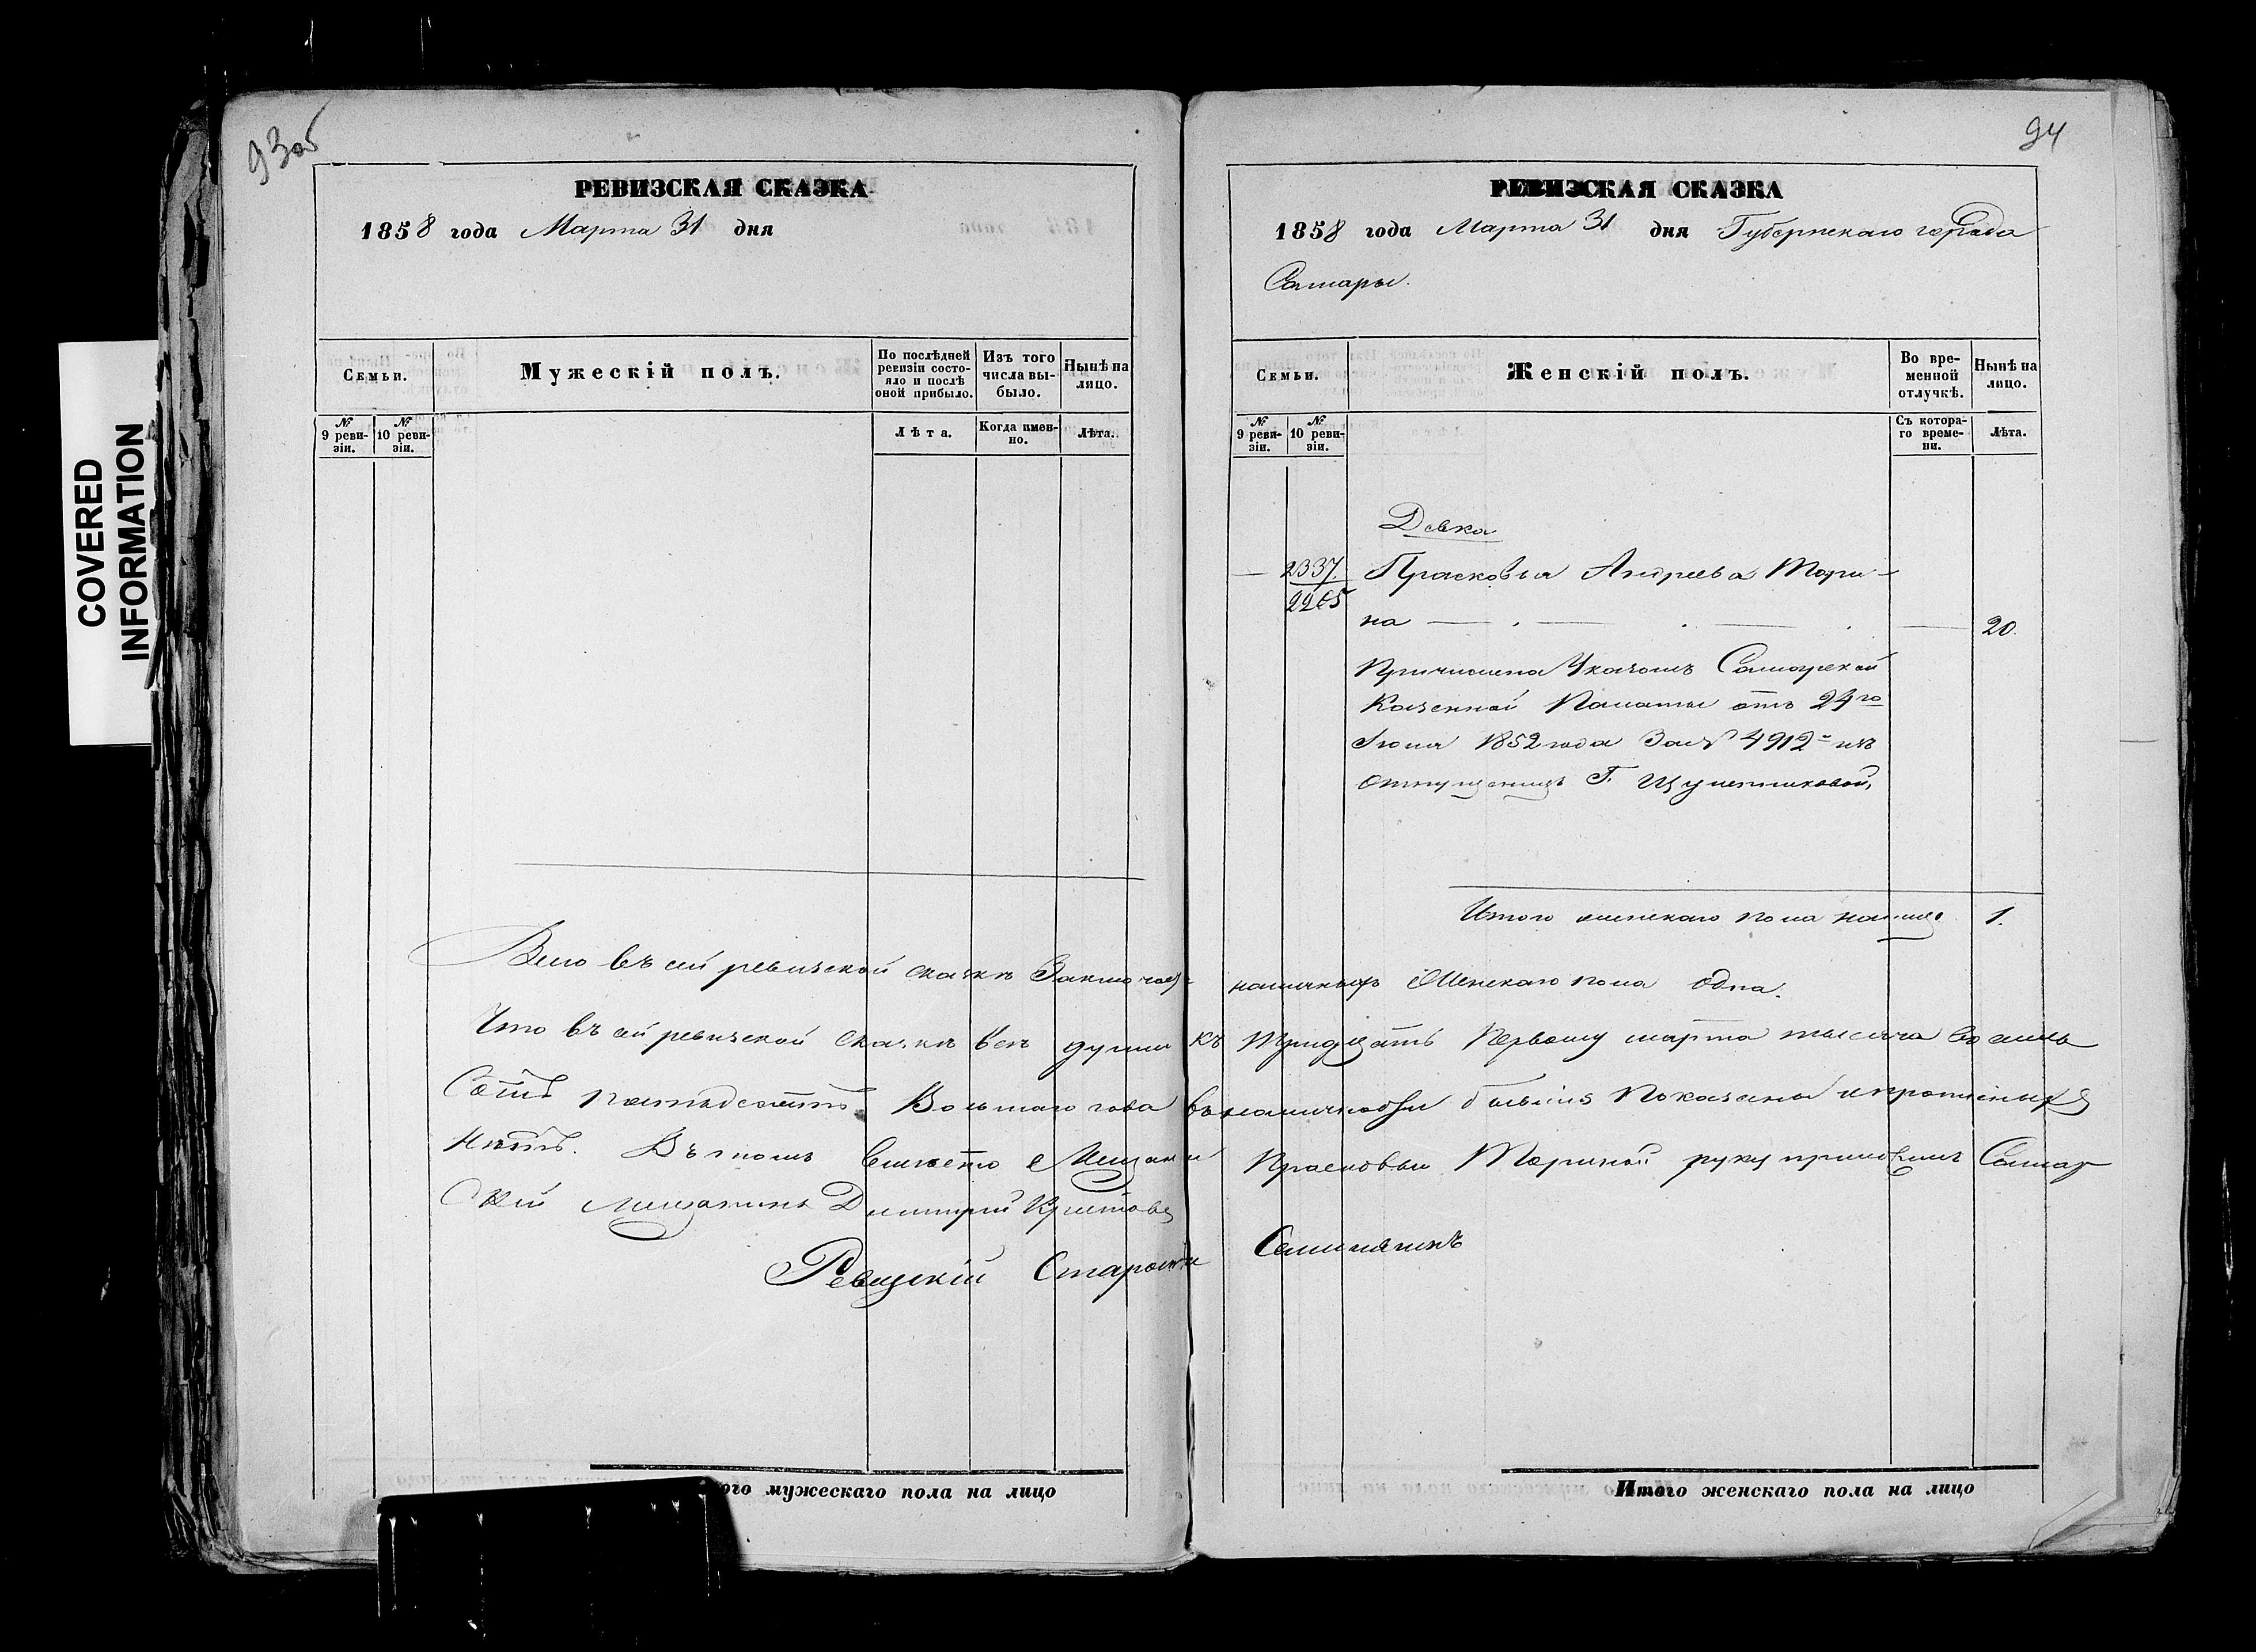 93об
РЕВИЗСКАЯ СКАЗКА
1858 года Марта 31 дня
Семьи.
Мужескій полъ.
По послѣдней ревизіи состояло и послѣ оной прибыло.
Изъ того числа выбыло.
Нынѣ на лицо.
№ 9 ревизіи.
№ 10 ревизіи.
Лѣта.
Когда именно.
Лѣта.
94
РЕВИЗСКАЯ СКАЗКА
1858 года Марта 31 дня Губернскаго города
Самары.
Семьи.
Женскій полъ.
Во временной отлучкѣ.
Нынѣ на лицо.
№ 9 ревизіи.
№ 10 ревизіи.
Съ котораго времени.
Лѣта.
Девка
2337. Прасковья Андреева Тори-
2265
на 20.
Причислена Указомъ Самарской
Казенной Палаты отъ 24го
Іюня 1852 года За № 4912 изъ
отпущениц Г.
Итого женскаго пола налицо 1.
Всего въ сей ревизской сказкѣ Заключае- наличныхъ Женскаго пола одна.
Что въ сей ревизской сказкѣ все души къ тридцать Первому марта тысяча восемь
Сотъ пятьдесятъ Восьмаго года въ наличности бывшия Показаны и прописныхъ
нѣтъ. Въ томъ вместо Мещанки Прасковьи Ториной руку приложилъ Самар
Скій мещанинъ Дмитрій
Ревизскій Староста
COVERED
INFORMATION
ого мужескаго пола на лицо
Итого женскаго пола на лицо